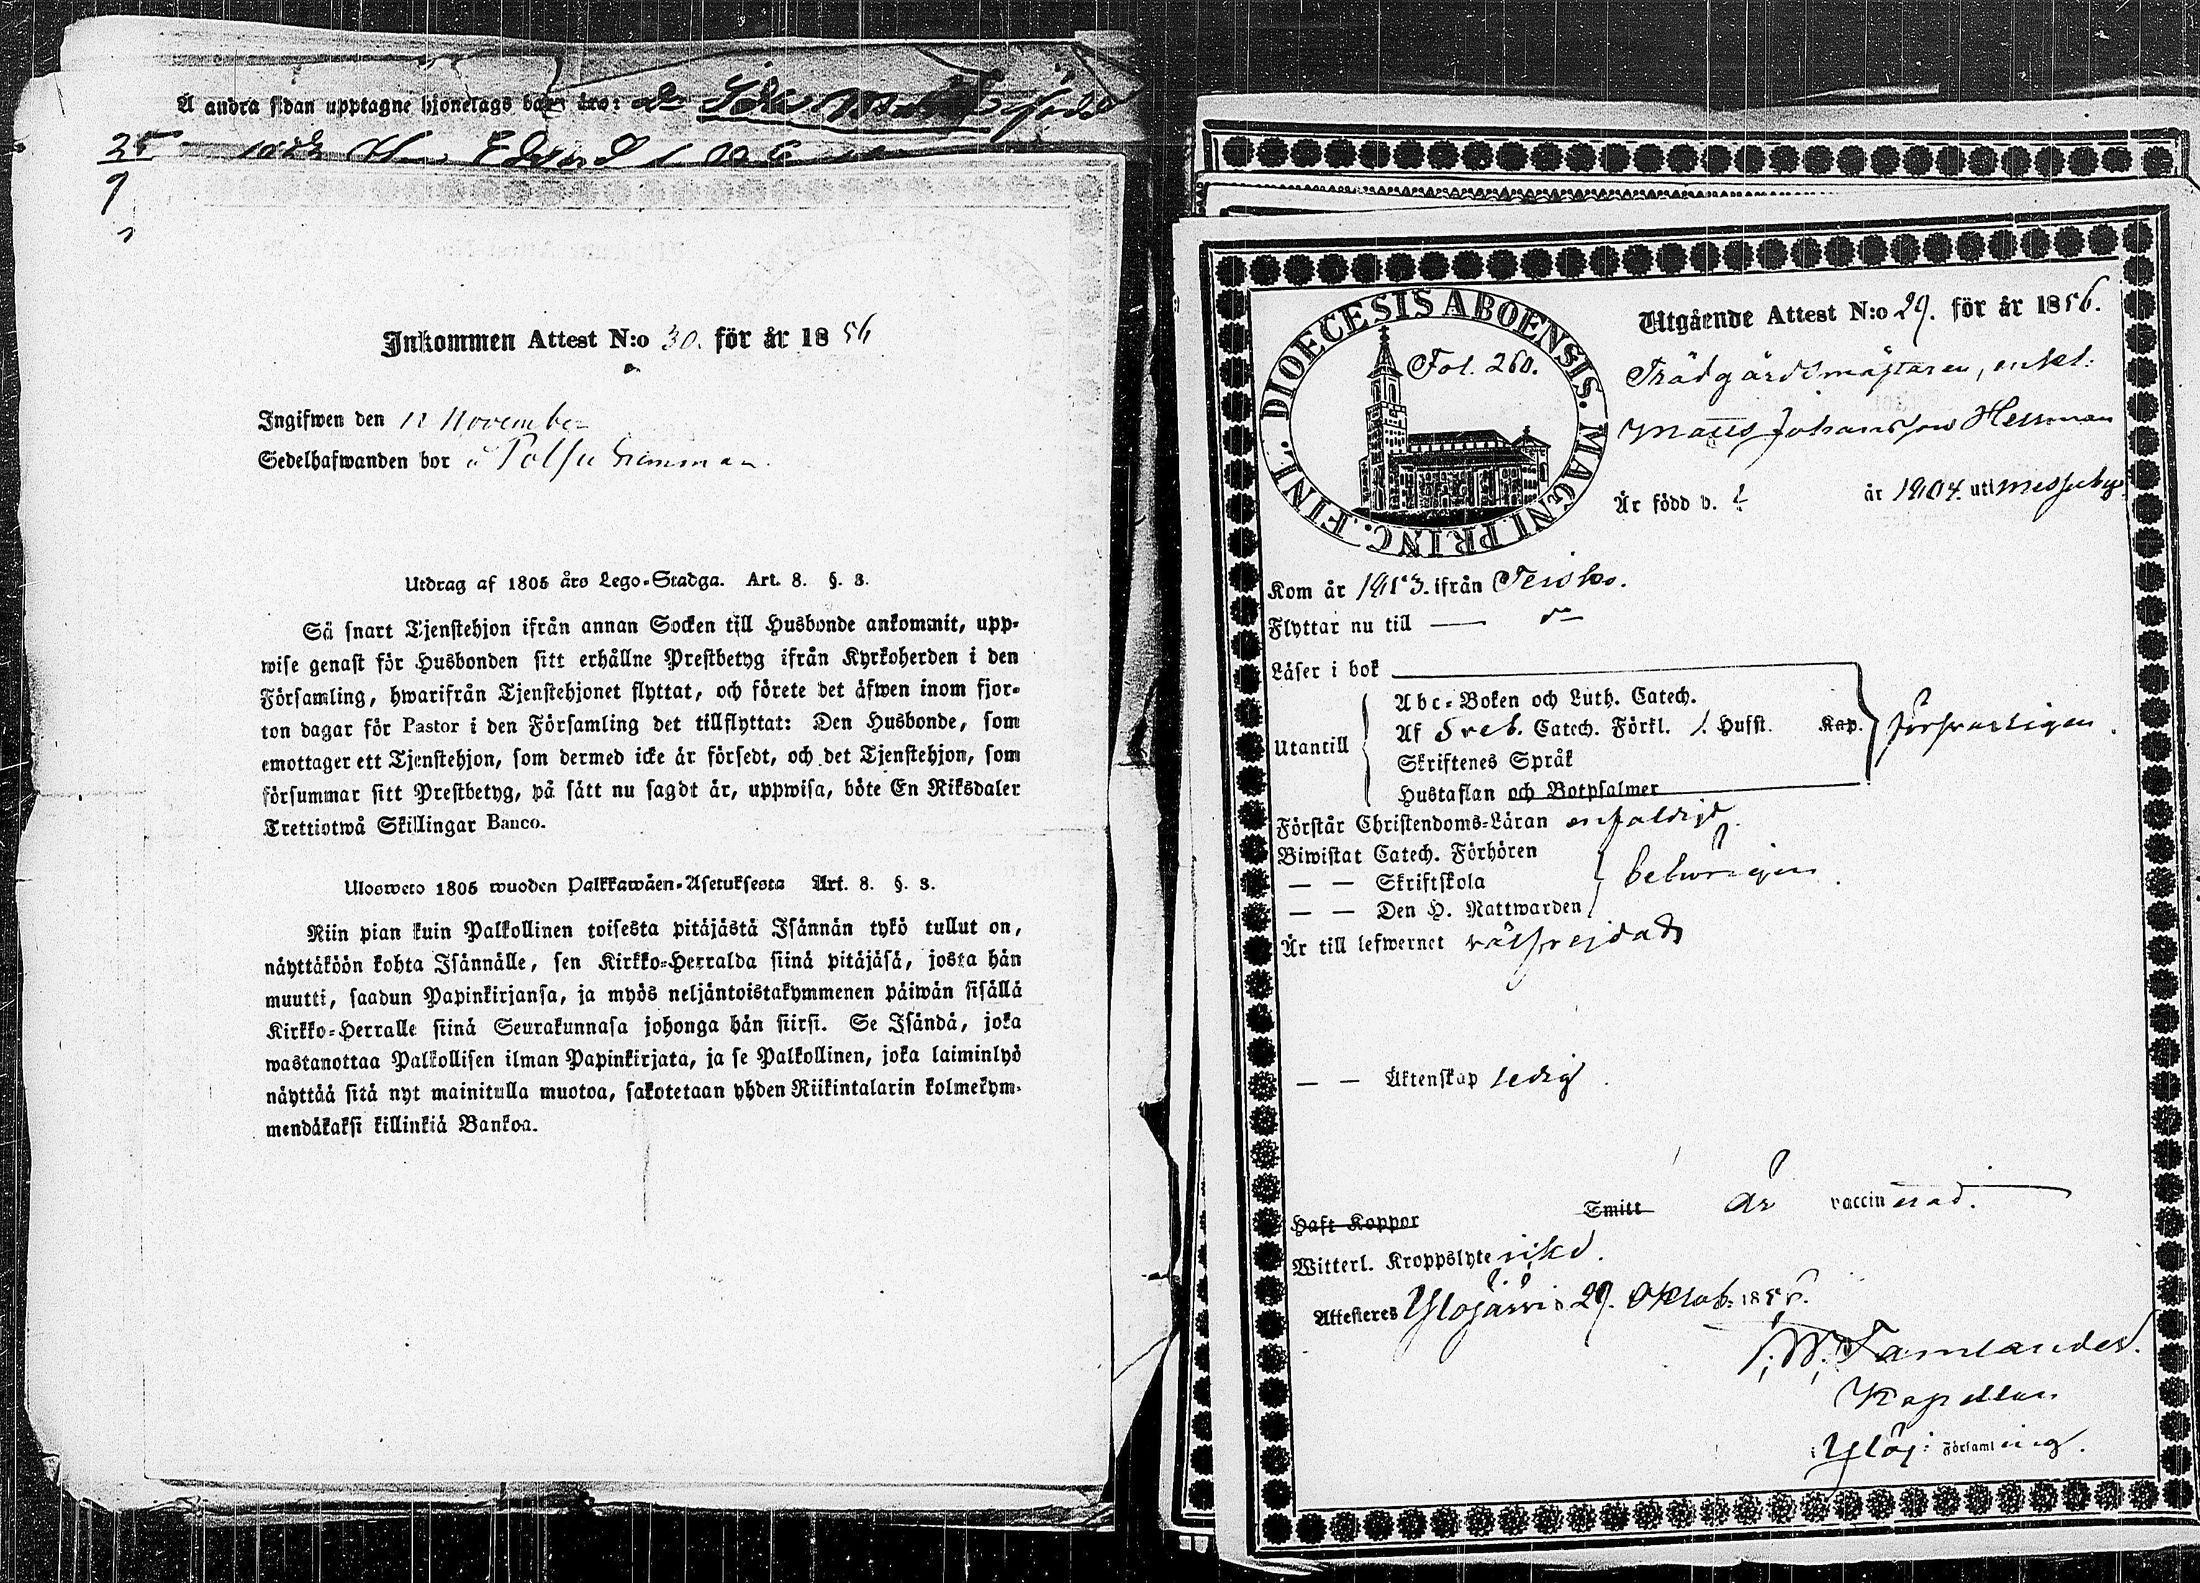 Å andra sidan upptagne hjonelags barn äro:
25
9
Inkommen Attest N:o 30. för år 1856
Ingifwen den 11 November
Sedelhafwanden bor å
Utdrag af 1805 års Lego-Stadga. Art. 8. §. 3.
Så snart Tjenstehjon ifrån annan Socken till Husbonde ankommit, upp-
wise genast för Husbonden sitt erhållne Prestbetyg ifrån Kyrkoherden i den
Församling, hwarifrån Tjenstehjonet flyttat, och förete det äfwen inom fjor-
ton dagar för Pastor i den Församling det tillflyttat: Den Husbonde, som
emottager ett Tjenstehjon, som dermed icke är försedt, och det Tjenstehjon, som
försummar sitt Prestbetyg, på sätt nu sagdt är, uppwisa, böte En Riksdaler
Trettiotwå Skillingar Banco.
Ulosweto 1805 wuoden Palkkawäen-Asetuksesta Art. 8. §. 3.
Niin pian kuin Palkollinen toisesta pitäjästä Isännän tykö tullut on,
näyttäköön kohta Isännälle, sen Kirkko-Herralda siinä pitäjäsä, josta hän
muutti, saadun Papinkirjansa, ja myös neljäntoistakymmenen päiwän sisällä
Kirkko-Herralle siinä Seurakunnasa johonga hän siirsi. Se Isändä, joka
wastanottaa Palkollisen ilman Papinkirjata, ja se Palkollinen, joka laiminlyö
näyttää sitä nyt mainitulla muotoa, sakotetaan yhden Riikintalarin kolmekym-
mendäkaksi killinkiä Bankoa.
DIOECESIS ABOENSIS. MAGNI PRINC. FINL.
Fol. 260.
Utgående Attest N:o 29. för år 1856.
Trädgårdsmästaren, enkl.
Matts Johansson Hellman
Är född d. år 1804. uti Messuby
Kom år 1853. ifrån Teisko.
Flyttar nu till — d:o
Läser i bok
Abc-Boken och Luth. Catech.
Utantill Af Sveb. Catech. Förkl. 1. Husst. Kap. försvarligen
Skriftenes Språk
Hustaflan och Botpsalmer
Förstår Christendoms-Läran enfaldigt
Biwistat Catech. Förhören
— — Skriftskola behörigen.
— — Den H. Nattwarden
Är till lefwernet välfrejdad
— — Äktenskap ledig.
Haft Koppor Smitt Är vaccinerad.
Witterl. Kroppslyte utd.
Attesteres Ylöjärvi d. 29. Oktob. 1856.
Kapellan
i Ylöj: Församling.